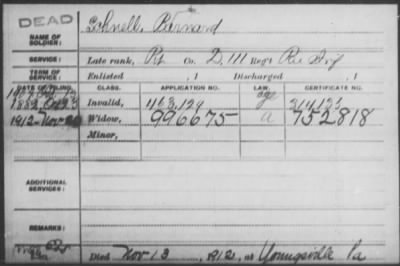 DEAD
NAME OF SOLDIER: Schnell, Bernard
SERVICE: Late rank, Pvt Co. D, 111 Reg't Pa Inf
TERM OF SERVICE: Enlisted , 1 Discharged , 1
DATE OF FILING. CLASS. APPLICATION NO. LAW. CERTIFICATE NO.
Invalid,
1912-Nov Widow, 996675 a 752818
Minor,
ADDITIONAL SERVICES:
REMARKS:
Died Nov 13, 1912, at Youngsville Pa